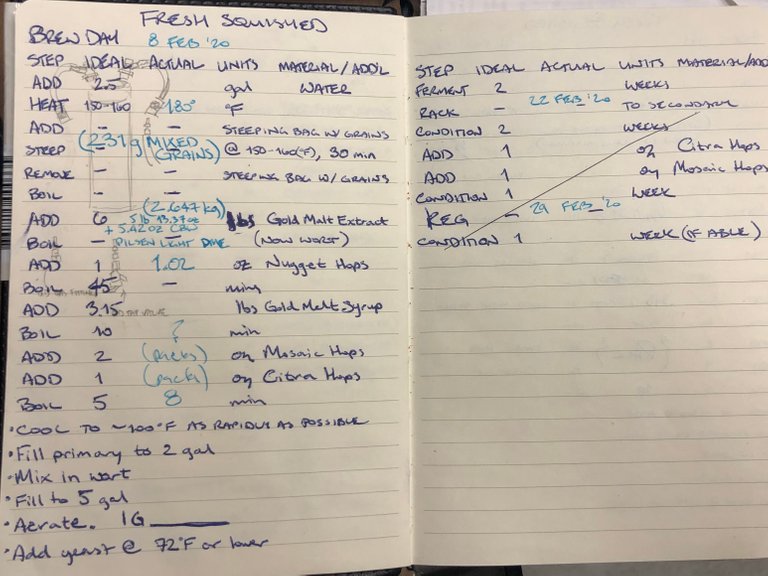 FRESH SQUISHED
BREW DAY 8 FEB '20
STEP IDEAL ACTUAL UNITS MATERIAL/ADD'L
ADD 2.5 gal WATER
HEAT 150-160 180° °F
ADD — — STEEPING BAG W/ GRAINS
STEEP — (231g MIXED GRAINS) @ 150-160(°F), 30 min
REMOVE — — STEEPING BAG W/ GRAINS
BOIL — —
(2.647kg)
ADD 6 5 lb 13.37oz lbs Gold Malt Extract
+ 5.42oz CBW
BOIL — PILSEN LIGHT DME (NOW WORT)
ADD 1 1.02 oz Nugget Hops
BOIL 45 — mins
ADD 3.15 lbs Gold Malt Syrup
BOIL 10 ? min
ADD 2 (packs) oz Mosaic Hops
ADD 1 (pack) oz Citra Hops
BOIL 5 8 min
• COOL TO ~100°F AS RAPIDLY AS POSSIBLE
• Fill primary to 2 gal
• Mix in wort
• Fill to 5 gal
• Aerate. IG
• Add yeast @ 72°F or lower
STEP IDEAL ACTUAL UNITS MATERIAL/ADD
FERMENT 2 WEEKS
RACK — 22 FEB '20 TO SECONDARY
CONDITION 2 WEEKS
ADD 1 oz Citra Hops
ADD 1 oz Mosaic Hops
CONDITION 1 WEEK
KEG — 29 FEB '20
CONDITION 1 WEEK (IF ABLE)